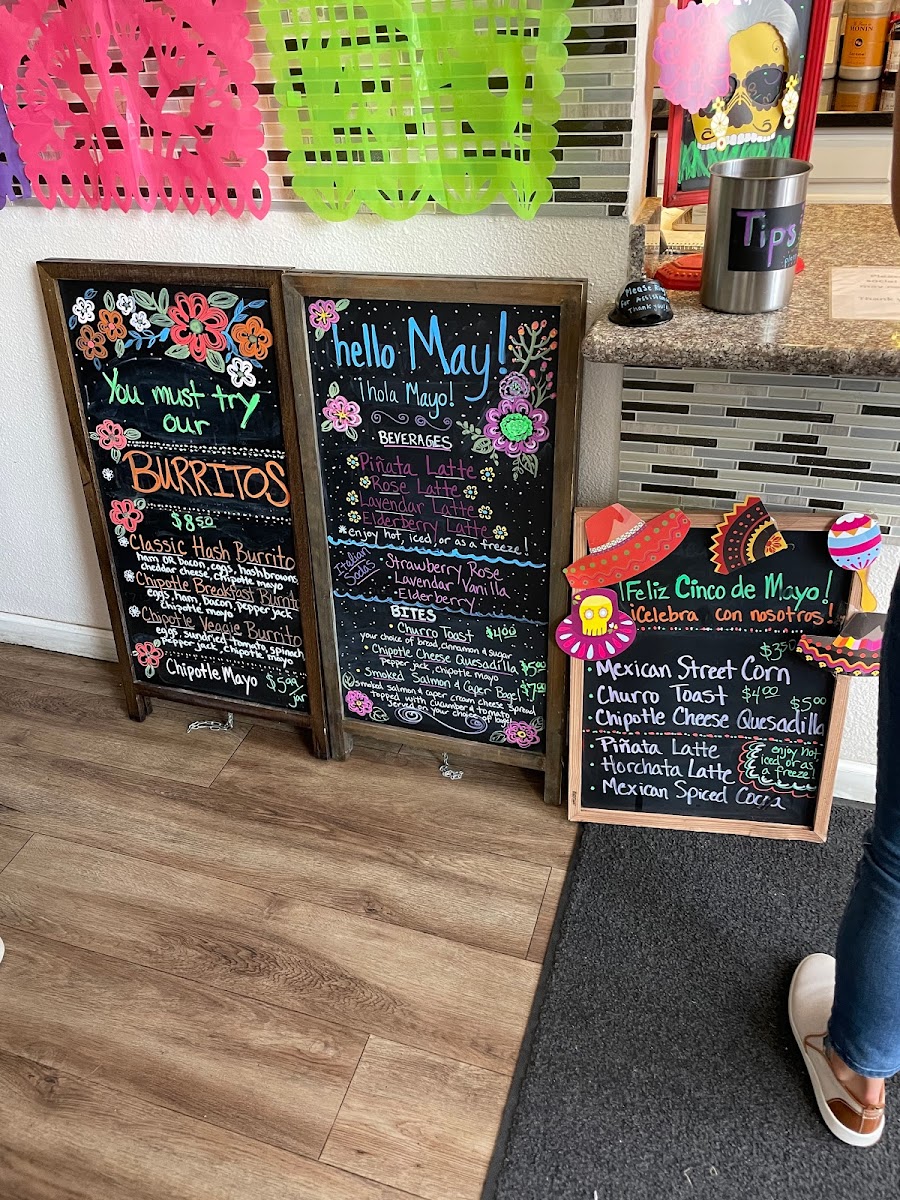 You must try
our
BURRITOS
$8.50
Classic Hash Burrito
ham or bacon, eggs, hashbrowns,
cheddar cheese, chipotle mayo
Chipotle Breakfast Burrito
eggs, ham, bacon, pepper jack
chipotle mayo
Chipotle Veggie Burrito
eggs, sundried tomato, spinach
pepper jack, chipotle mayo
Chipotle Mayo $5.00/
jar
hello May!
¡hola Mayo!
BEVERAGES
Piñata Latte
Rose Latte
Lavendar Latte
Elderberry Latte
*enjoy hot, iced, or as a freeze!
Italian
Sodas
Strawberry Rose
Lavendar Vanilla
Elderberry
BITES
• Churro Toast $4.00
your choice of bread, cinnamon & sugar
• Chipotle Cheese Quesadilla $5.00
pepper jack, chipotle mayo
Smoked Salmon & Caper Bagel $7.00
smoked salmon & caper cream cheese spread
topped with cucumber & tomato
served on your choice of bagel
Tips
Please Ring
For Assistance
Thank you!
Please
Thank
¡Feliz Cinco de Mayo!
¡Celebra con nosotros!
$3.50
• Mexican Street Corn
• Churro Toast $4.00
• Chipotle Cheese Quesadilla $5.00
• Piñata Latte
• Horchata Latte
• Mexican Spiced Cocoa
enjoy hot
iced or as
a freeze!